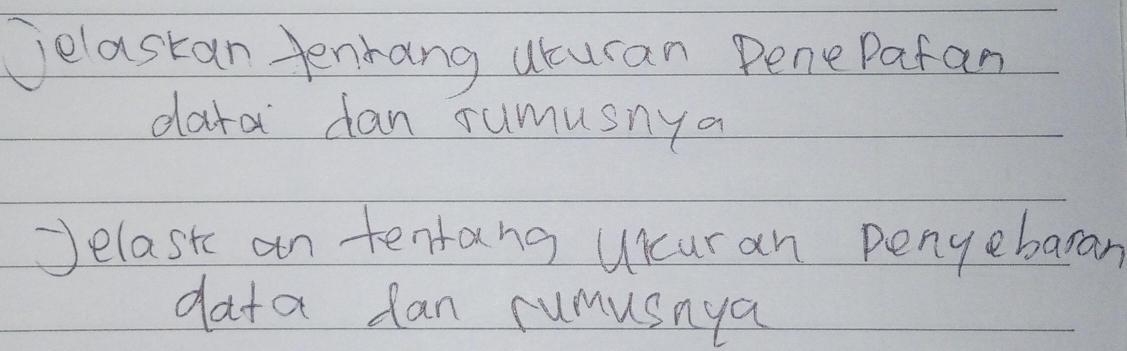 Jelaskan tentang ukuran Penepatan
datai dan rumusnya
Jelask an tentang Ukuran Penyebaran
data dan rumusnya